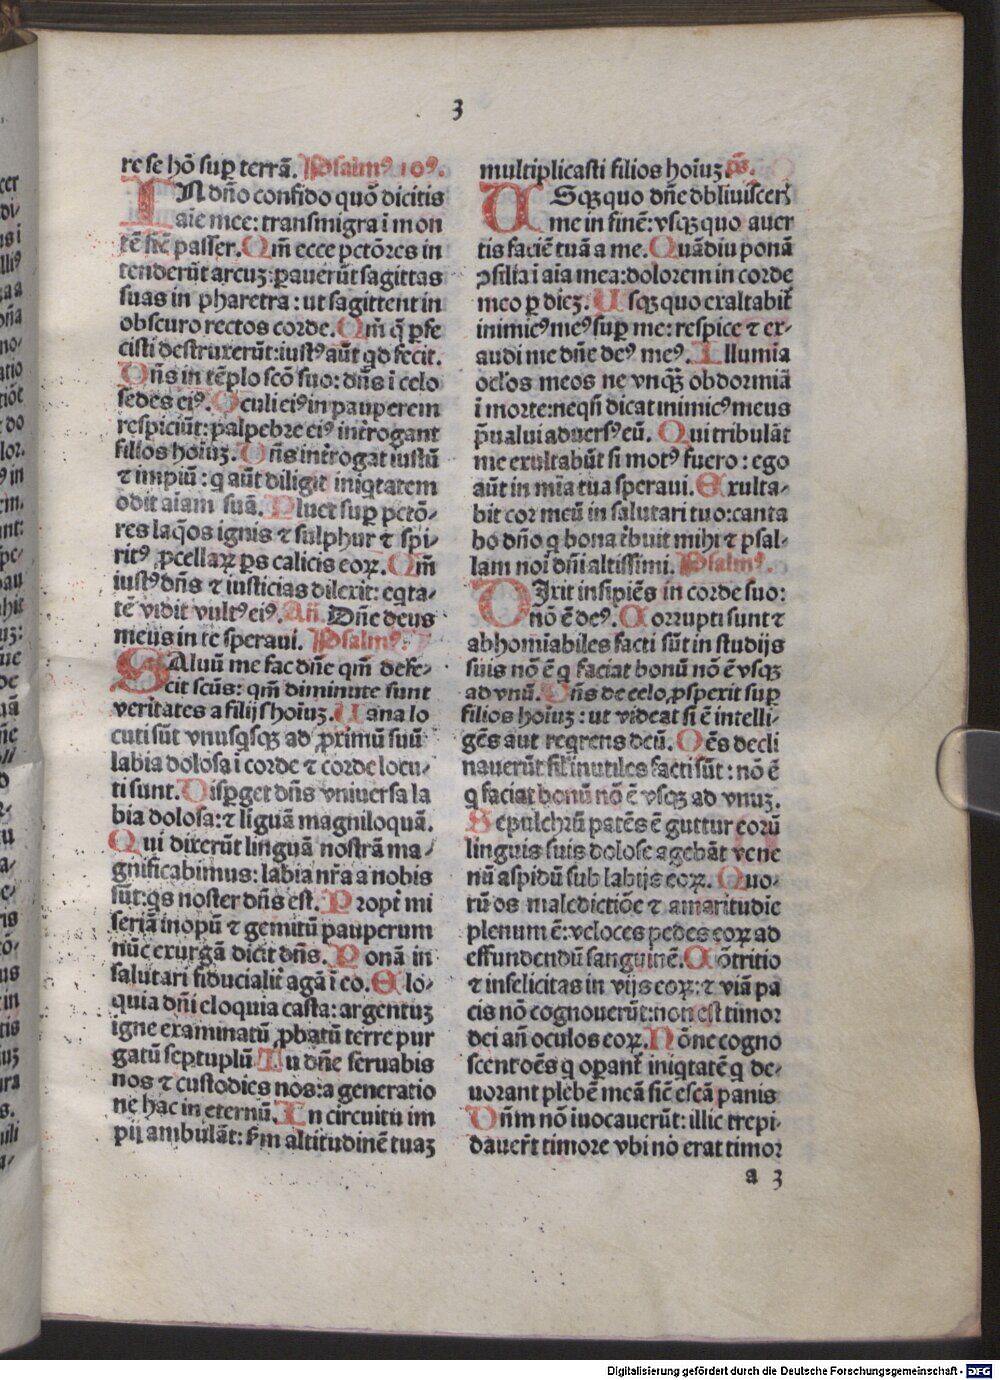 3
re se hō suꝑ terrā. Psalmꝰ 10ꝰ.
IN dn̄o confido quō dicitis
aīe mee: transmigra ī mon
tē sic̄ passer. Qm̄ ecce pctōres in
tenderūt arcuꝫ: ꝑauerūt sagittas
suas in pharetra: ut sagittent in
obscuro rectos corde. Qm̄ q̄ ꝑfe
cisti destruxerūt: iustꝰ aūt qd fecit.
Dn̄s in tēplo scō suo: dn̄s ī celo
sedes eiꝰ. Oculi eiꝰ in pauperem
respiciūt: palpebre eiꝰ int̄rogant
filios hoīuꝫ. Dn̄s int̄rogat iustū
⁊ impiū: q aūt diligit iniqtatem
odit aīam suā. Pluet suꝑ pctō-
res laq̄os ignis ⁊ sulphur ⁊ spi-
ritꝰ ꝓcellaꝝ ꝑs calicis eoꝝ. Qm̄
iustꝰ dn̄s ⁊ iusticias dilexit: eqta-
tē vidit vultꝰ eiꝰ. An̄. Dn̄e deus
meus in te speraui. Psalmꝰ.
SAluū me fac dn̄e qm̄ defe-
cit scūs: qm̄ diminute sunt
veritates a filijs hoīuꝫ. Uana lo
cuti sūt vnusqsqꝫ ad ꝓximū suū
labia dolosa ī corde ⁊ corde locu-
ti sunt. Disꝑget dn̄s vniuersa la
bia dolosa: ⁊ līguā magniloquā.
Qui dixerūt linguā nostrā ma-
gnificabimus: labia nr̄a a nobis
sūt: qs noster dn̄s est. Propt̄ mi
seriā inopū ⁊ gemitū pauperum
nūc exurgā dicit dn̄s. Ponā in
salutari fiducialit̄ agā ī eo. Elo-
quia dn̄i eloquia casta: argentuꝫ
igne examinatū ꝓbatū terre pur
gatū septuplū. Tu dn̄e seruabis
nos ⁊ custodies nos: a generatio
ne hac in eternū. In circuitu im
pij ambulāt: sm̄ altitudinē tuaꝫ
multiplicasti filios hoīuꝫ. ps̄.
USqꝫ quo dn̄e obliuiscer̄
me in finē: vsqꝫ quo auer
tis faciē tuā a me. Quādiu ponā
ꝯsilia ī aīa mea: dolorem in corde
meo ꝑ dieꝫ. Usqꝫ quo exaltabit̄
inimicꝰ meꝰ suꝑ me: respice ⁊ ex-
audi me dn̄e deꝰ meꝰ. Illumīa
ocl'os meos ne vnqꝫ̄ obdormiā
ī morte: neqn̄ dicat inimicꝰ meus
p̄ualui aduersꝰ eū. Qui tribulāt
me exultabūt si motꝰ fuero: ego
aūt in mīa tua speraui. Exulta-
bit cor meū in salutari tuo: canta
bo dn̄o q bona t̄buit mihi ⁊ psal-
lam noī dn̄i altissimi. Psalmꝰ.
DIxit insipiēs in corde suo:
nō ē deꝰ. Corrupti sunt ⁊
abhomiabiles facti sūt in studijs
suis nō ē q faciat bonū nō ē vsqꝫ
ad vnū. Dn̄s de celo ꝓsperit suꝑ
filios hoīuꝫ: ut videat si ē intelli-
gēs aut reqrens deū. Oēs decli
nauerūt sil' inutiles facti sūt: nō ē
q faciat bonū nō ē vsqꝫ ad vnuꝫ.
Sepulchrū patēs ē guttur eorū
linguis suis dolose agebāt vene
nū aspidū sub labijs eoꝝ. Quo-
rū os maledictiōe ⁊ amaritudie
plenum ē: veloces pedes eoꝝ ad
effundendū sanguinē. Cōtritio
⁊ infelicitas in vijs eoꝝ: ⁊ viā pa
cis nō cognouerūt: non est timor
dei an̄ oculos eoꝝ. Nōne cogno
scent oēs q oꝑant̄ iniqtatē q de-
uorant plebē meā sic̄ escā panis
Dn̄m nō iuocauerūt: illic trepi-
dauer̄t timore vbi nō erat timor
a 3
Digitalisierung gefördert durch die Deutsche Forschungsgemeinschaft - DFG